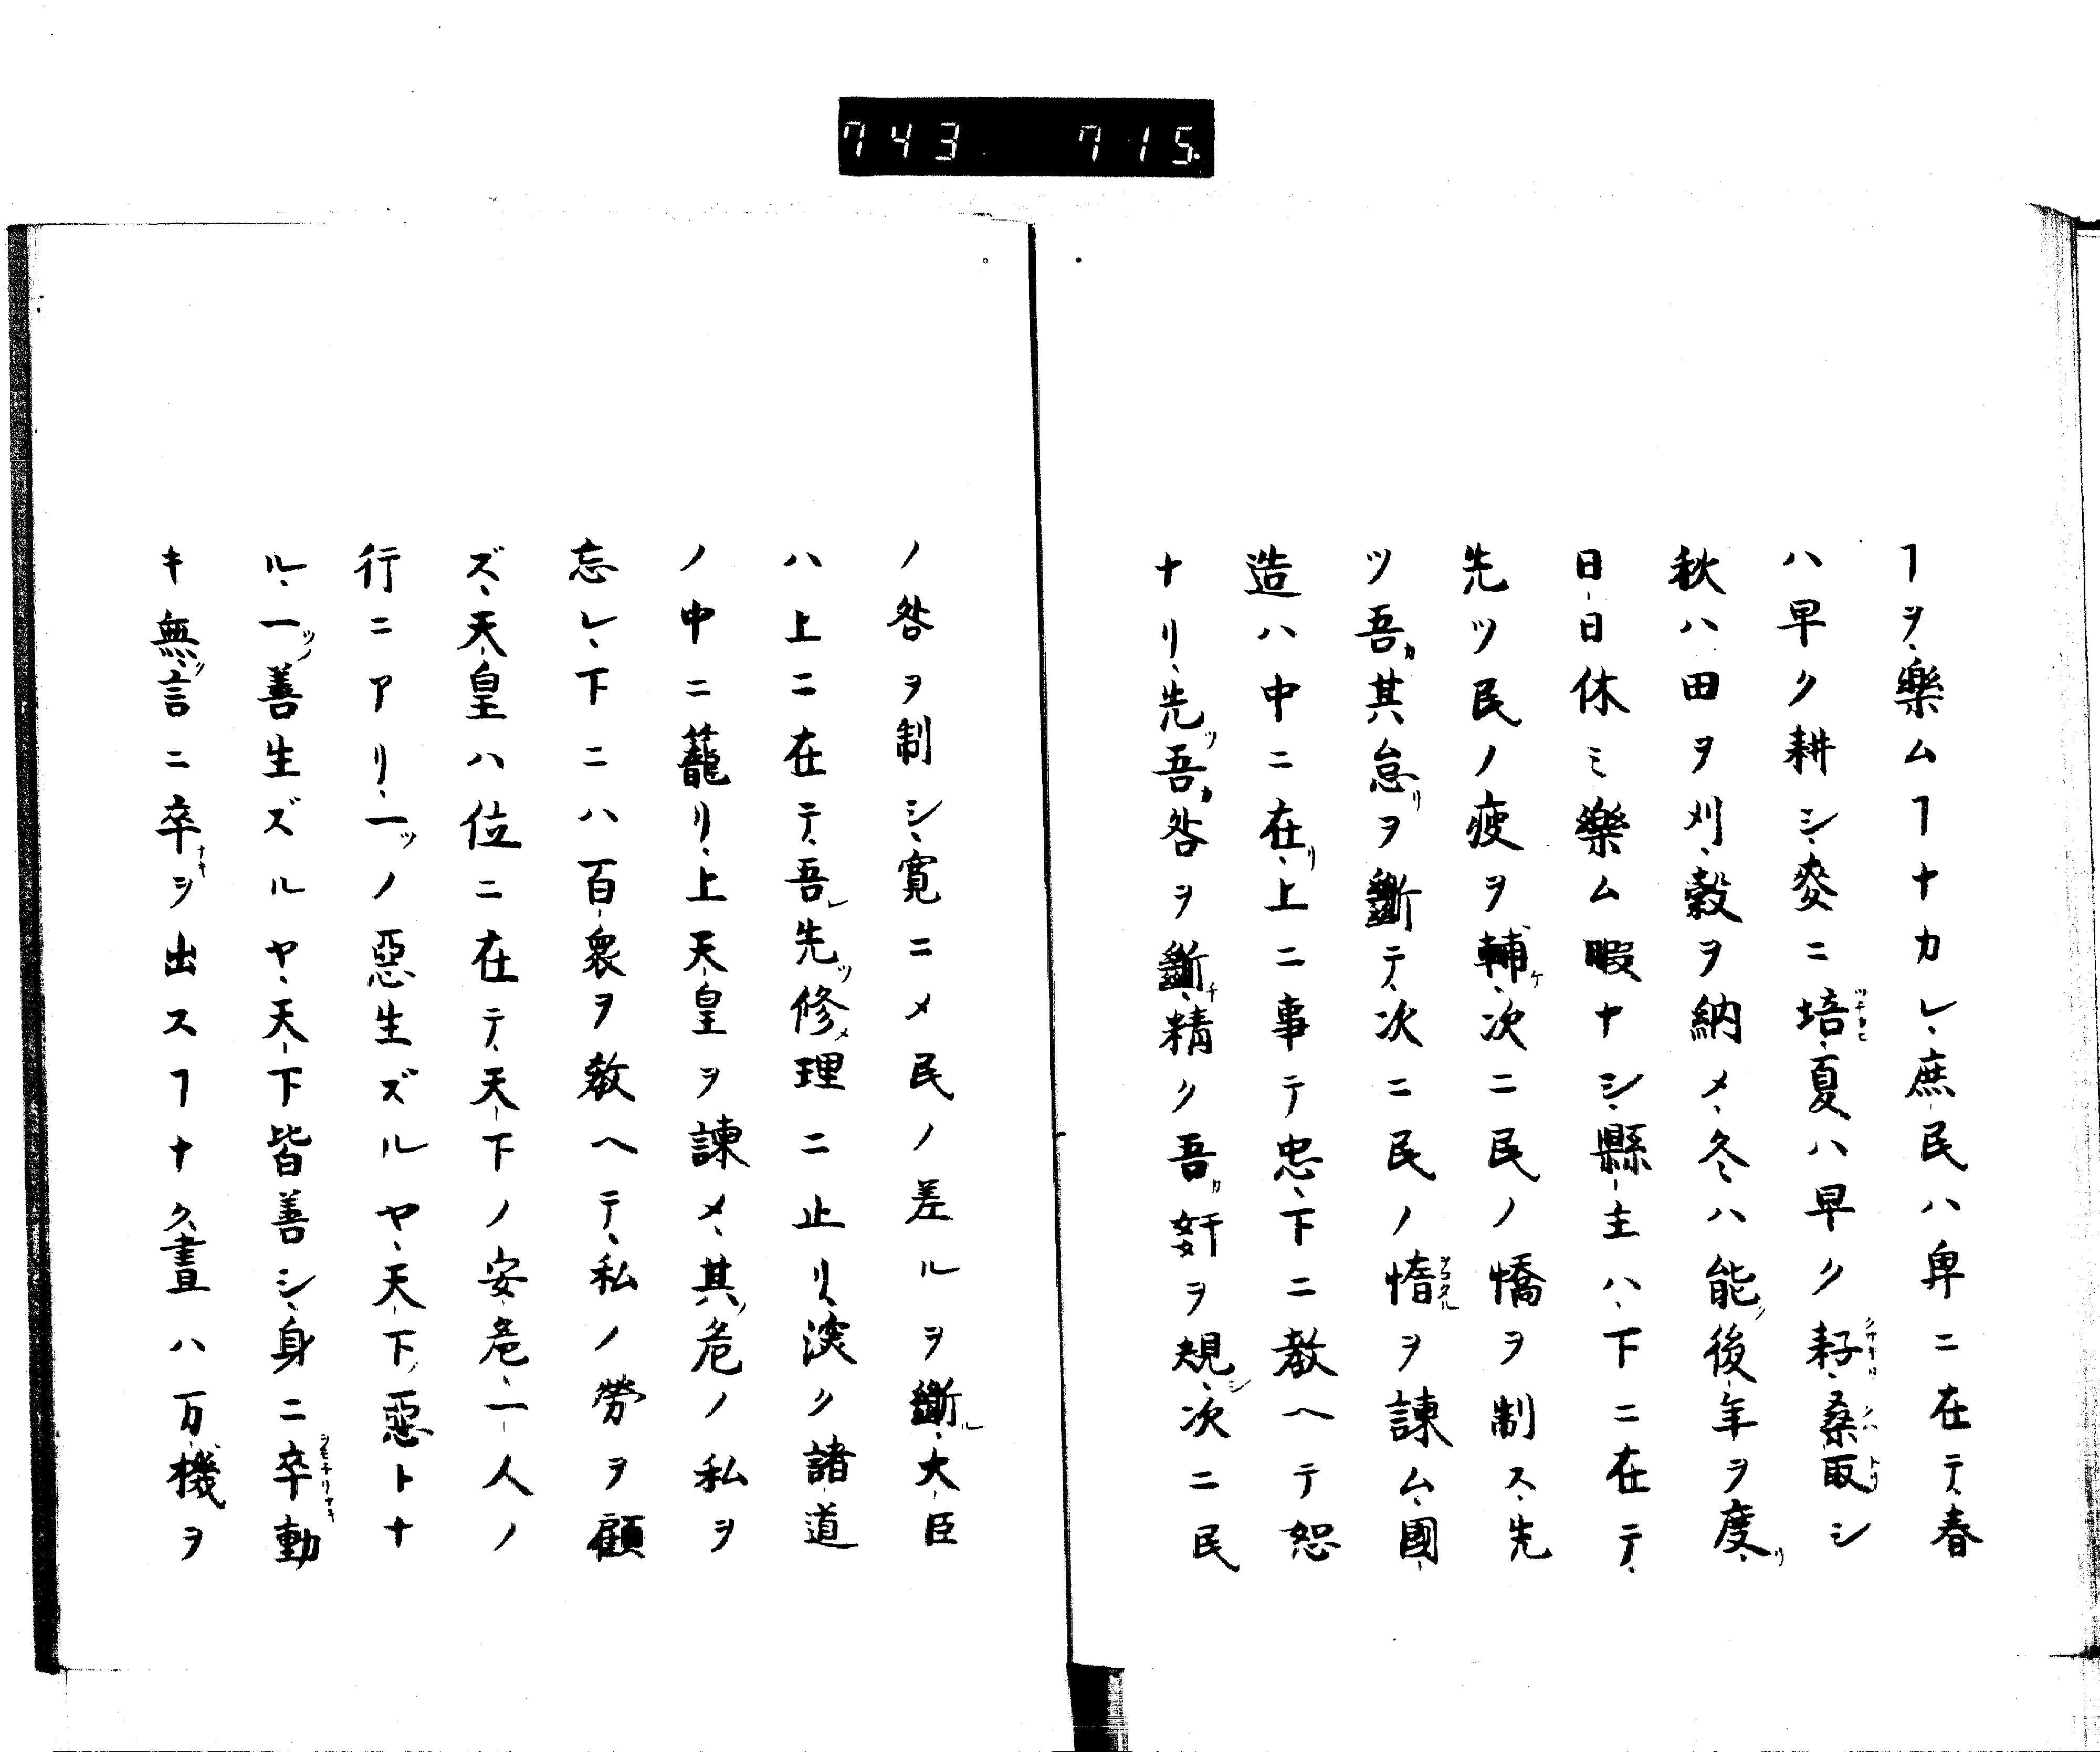 743 715
ヿヲ、樂ムヿナカレ、庶民ハ卑ニ在テ、春
ハ早ク耕シ、麥ニ培、夏ハ早ク耔、桑取シ
秋ハ田ヲ刈、穀ヲ納メ、冬ハ能ク後年ヲ度リ、
日日休ミ樂ム暇ナシ、縣主ハ、下ニ在テ、
先ツ民ノ疲ヲ輔ケ、次ニ民ノ憍ヲ制ス、先
ツ吾カ其怠リヲ斷テ、次ニ民ノ惰ヲ諫ム、國
造ハ中ニ在リ、上ニ事テ忠、下ニ教ヘテ恕
ナリ、先ツ吾カ咎ヲ斷チ、精ク吾カ奸ヲ規シ、次ニ民
ノ咎ヲ制シ、寛ニメ民ノ差ルヲ斷ル、大臣
ハ上ニ在テ、吾レ先ツ修メ理ニ止リ、深ク諸道
ノ中ニ蘢リ、上天皇ヲ諫メ、其ノ危ノ私ヲ
忘レ、下ニハ百衆ヲ教ヘテ、私ノ勞ヲ顧
ズ、天皇ハ位ニ在テ、天下ノ安危、一人ノ
行ニアリ、一ツノ惡生ズルヤ、天下ノ惡トナ
ル、一ツノ善生ズルヤ、天下皆善シ、身ニ卒動
キ無ク、言ニ卒ナキヲ出スヿナク、晝ハ万機ヲ